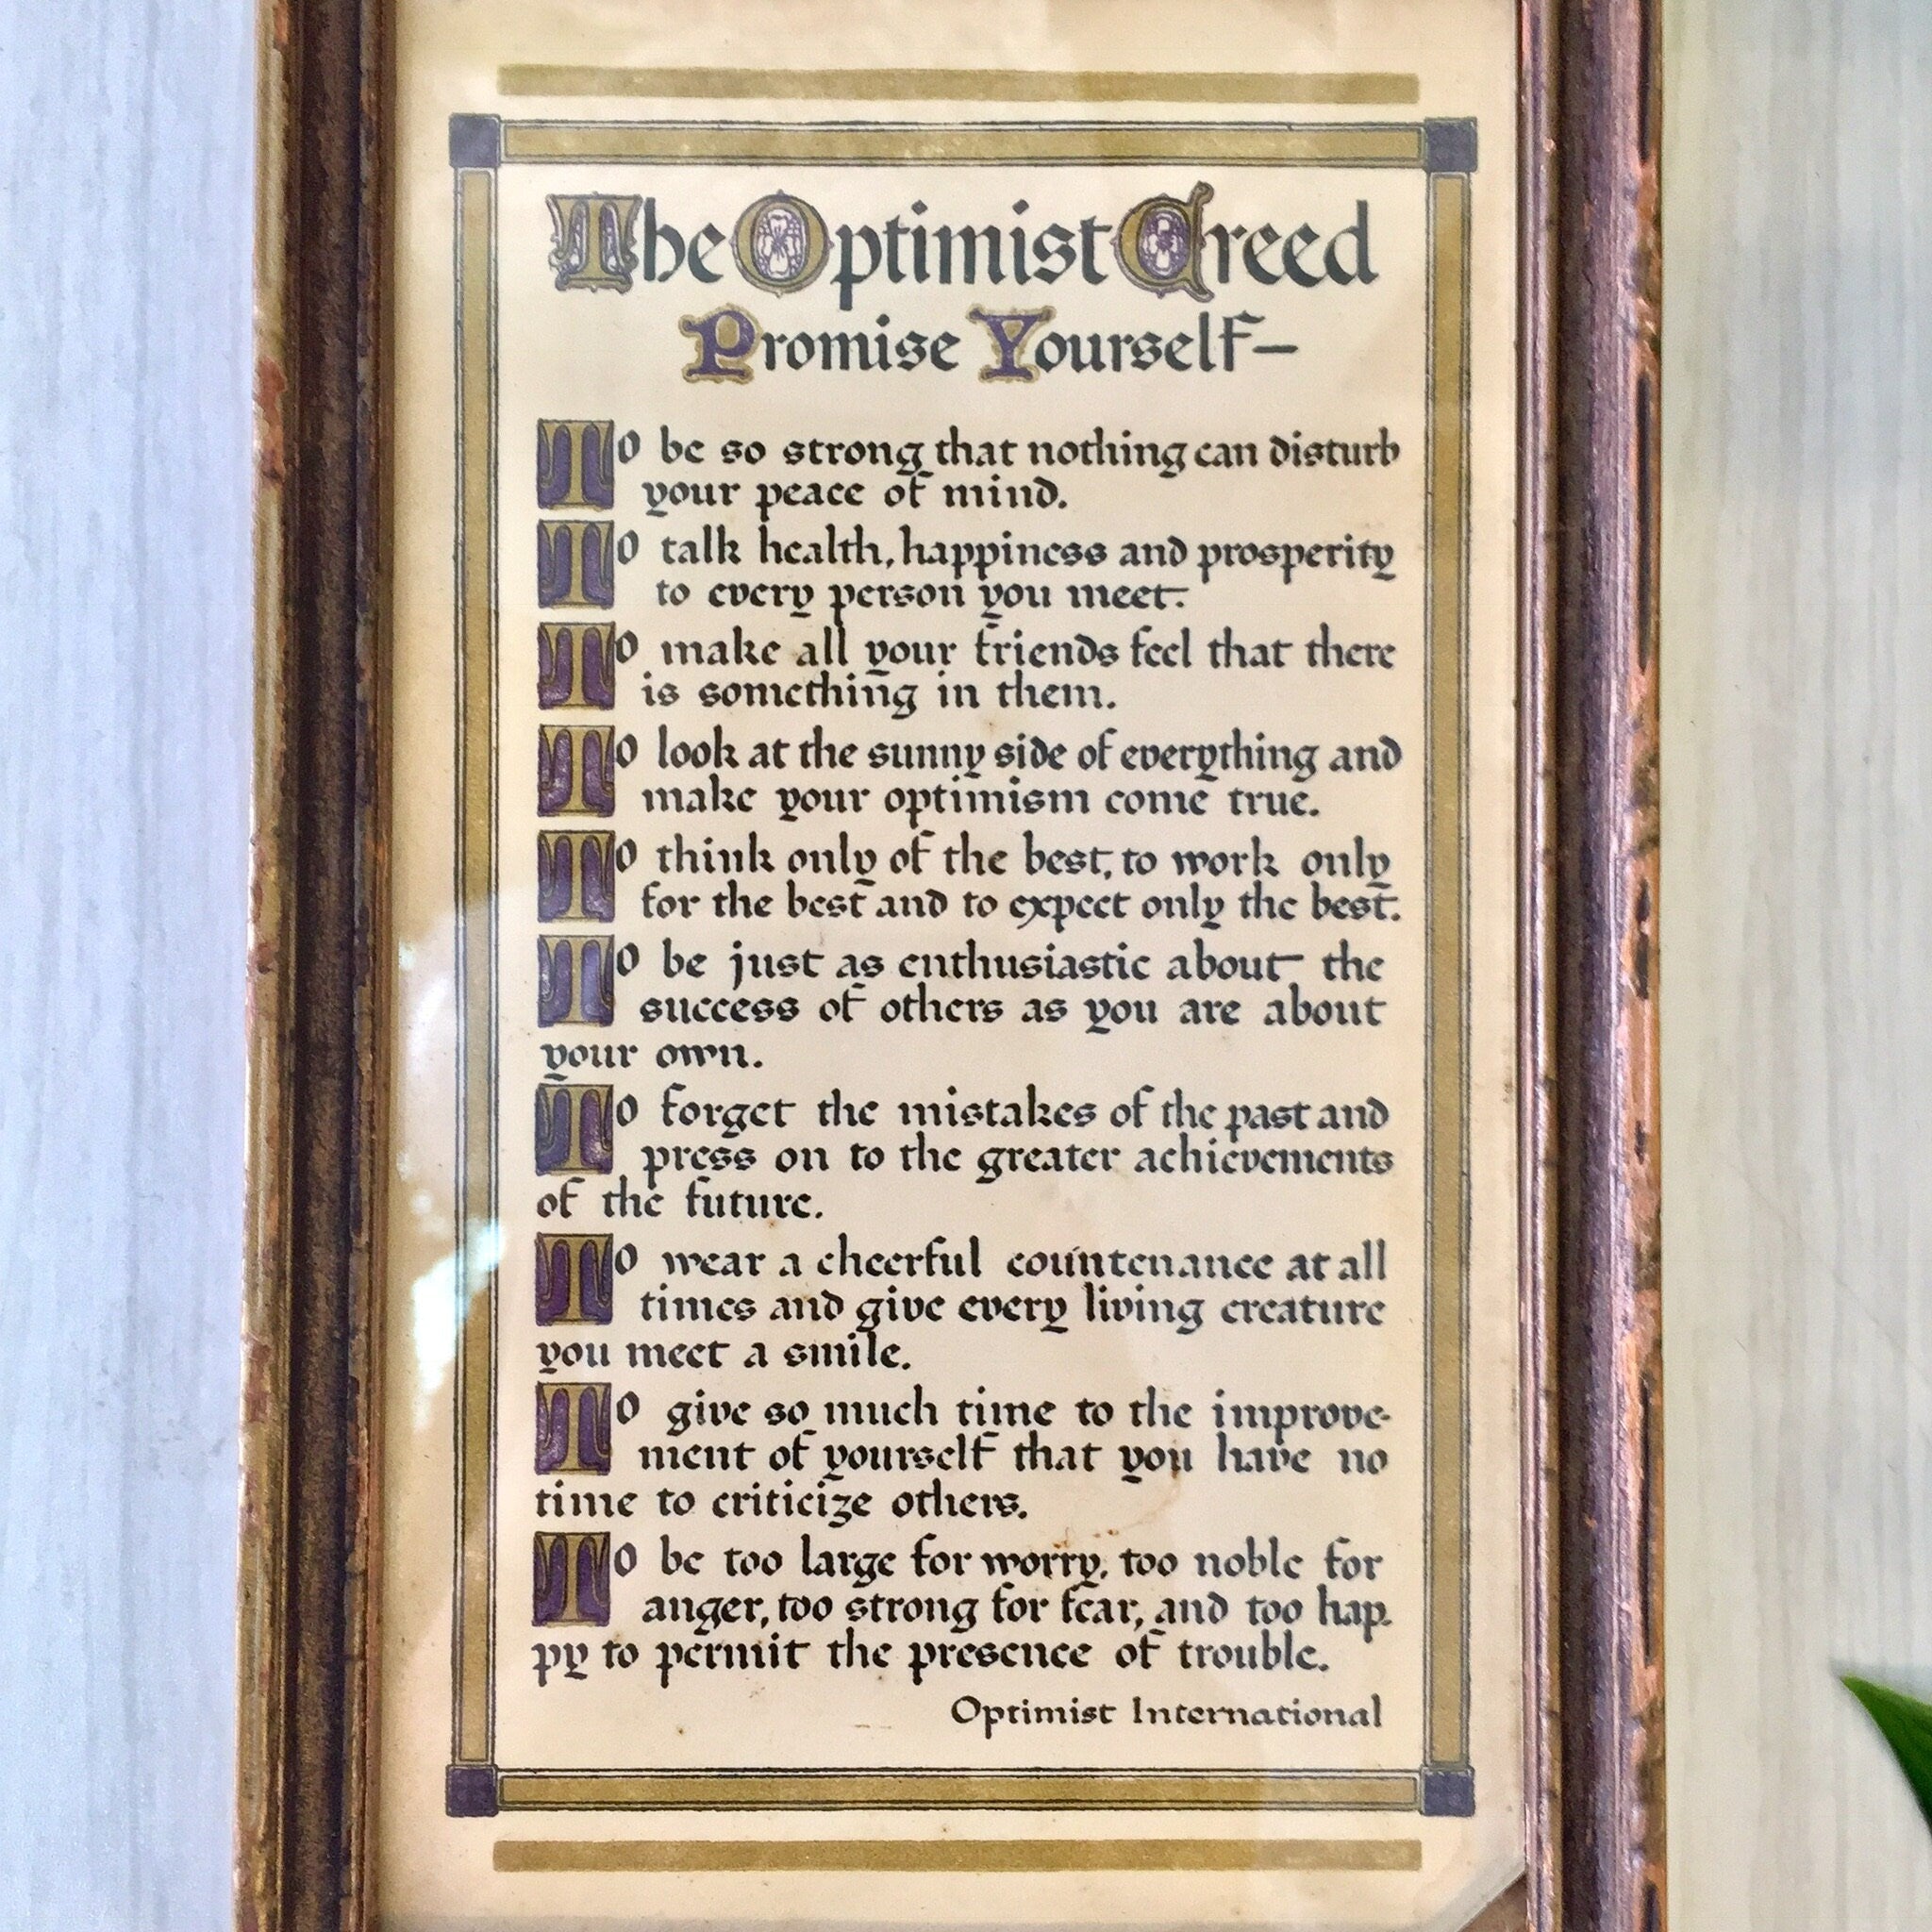 The Optimist Creed
Promise Yourself—
To be so strong that nothing can disturb
your peace of mind.
To talk health, happiness and prosperity
to every person you meet.
To make all your friends feel that there
is something in them.
To look at the sunny side of everything and
make your optimism come true.
To think only of the best, to work only
for the best and to expect only the best.
To be just as enthusiastic about the
success of others as you are about
your own.
To forget the mistakes of the past and
press on to the greater achievements
of the future.
To wear a cheerful countenance at all
times and give every living creature
you meet a smile.
To give so much time to the improve-
ment of yourself that you have no
time to criticize others.
To be too large for worry, too noble for
anger, too strong for fear, and too hap-
py to permit the presence of trouble.
Optimist International